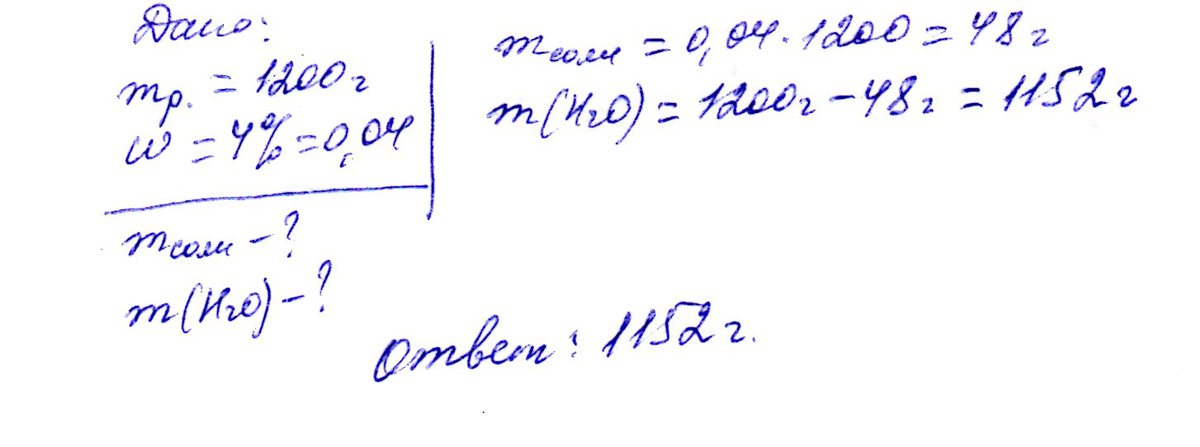 Дано:
mр. = 1200г
w = 4% = 0,04
mсоли - ?
m(H2O) - ?
mсоли = 0,04 · 1200 = 48г
m(H2O) = 1200г - 48г = 1152г
Ответ: 1152г.